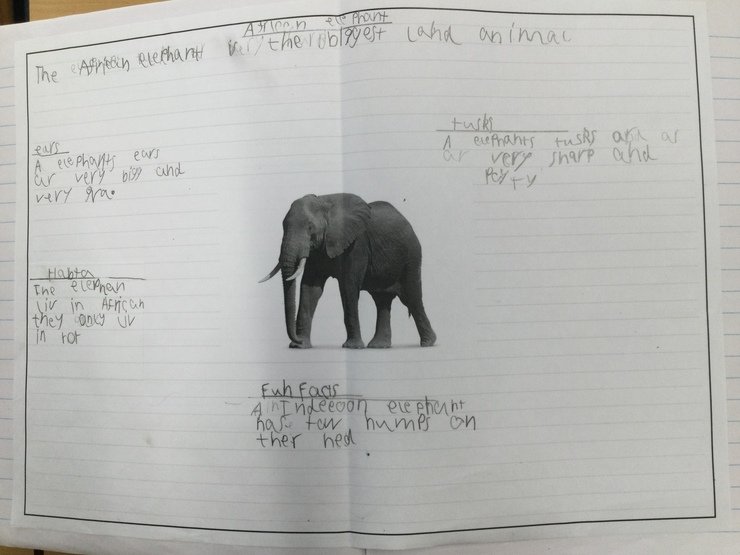 African elephant
The African elephant is the biggest land animal
ears
A elephants ears
ar very bigg and
very gra.
Habta
The elephan
liv in African
they only liv
in rot
tusks
A elephants tusks and as
ar very sharp and
Fun Facts
A Indeeoon elephant
has tow humps on
ther hed